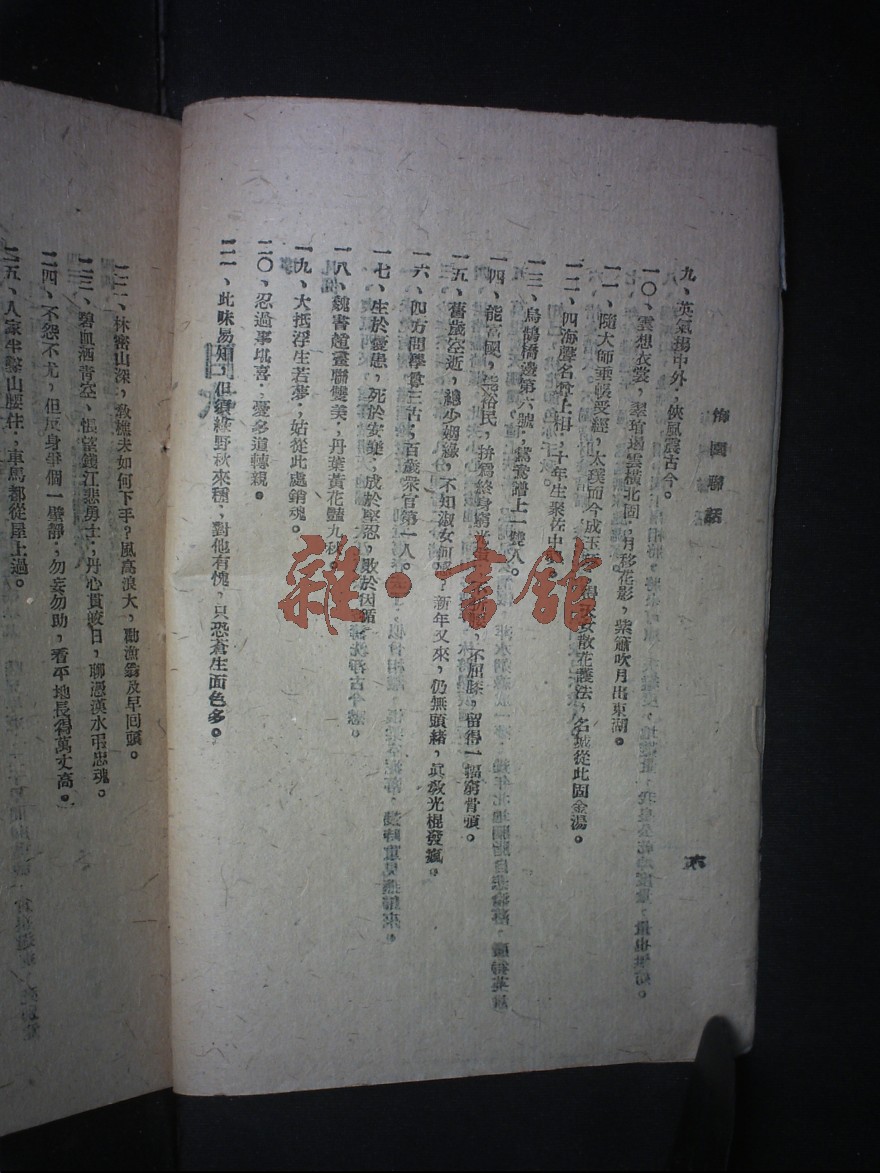 聯話
九、英氣揚中外，俠風震古今。
一〇、雲想衣裳，翠琯遏雲橫北固，月移花影，紫簫吹月出東湖。
一一、隨大師垂帳受經，太璞而今成玉，天女散花護法，名城從此固金湯。
一二、四海聲名尊上相，三十年生聚佐中
一三、烏鵲橋邊第六號，鴛鴦譜上一雙人。
一四、能富國，能裕民，拚得終身窮光，不屈膝，留得一副窮骨頭。
一五、舊歲空逝，總少姻緣，不知淑女何，新年又來，仍無頭緒，眞教光棍發瘋。
一六、四方問學貫三古，百歲衆官第一人。
一七、生於憂患，死於安樂，成於堅忍，敗於因循。
一八、魏書趙畫聯雙美，丹葉黃花豔九秋。
一九、大抵浮生若夢，姑從此處銷魂。
二〇、忍過事堪喜，憂多道轉親。
二一、此味易知，但須綠野秋來種，對他有愧，只恐蒼生面色多。
二二、林密山深，敎樵夫如何下手？風高浪大，勸漁翁及早回頭。
二三、碧血洒靑空、悵望錢江悲勇士，丹心貫皎日，聊憑漢水弔忠魂。
二四、不怨不尤，但反身爭個一壁靜，勿妄勿助，看平地長得萬丈高。
二五、人家半鑿山腰住，車馬都從屋上過。
雜·書館